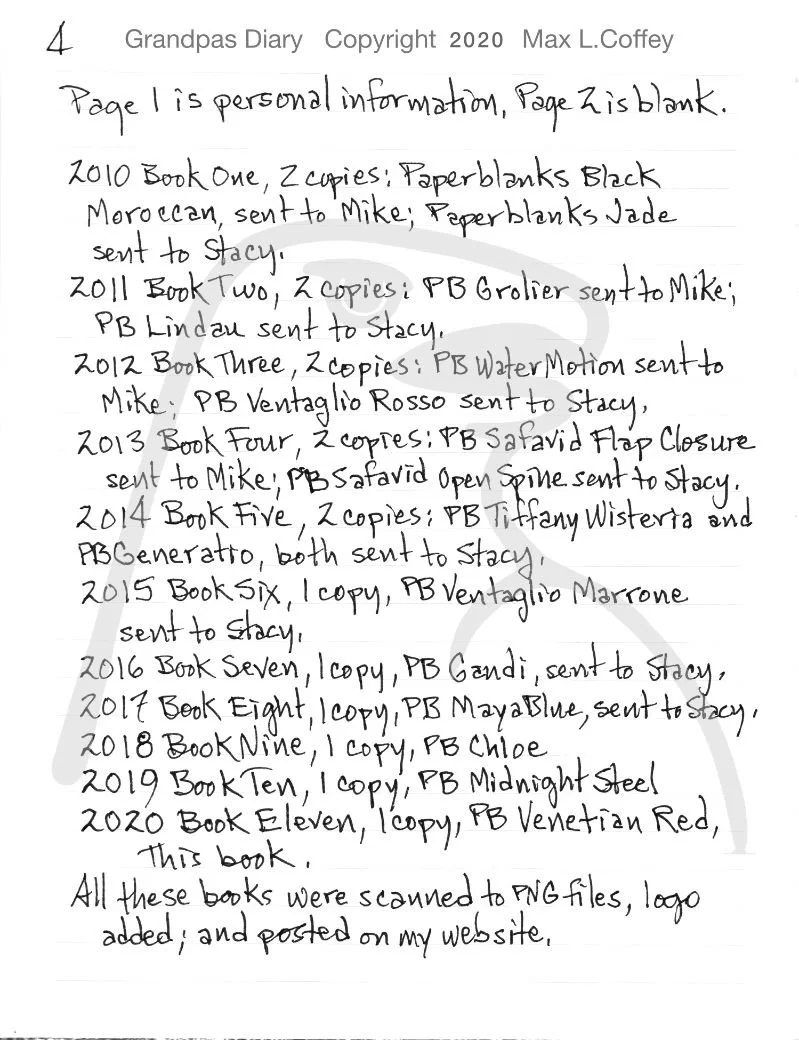 4 Grandpas Diary Copyright 2020 Max L.Coffey
Page 1 is personal information, Page 2 is blank.
2010 Book One, 2 copies: Paperblanks Black
Moroccan, sent to Mike; Paperblanks Jade
sent to Stacy.
2011 Book Two, 2 copies: PB Grolier sent to Mike;
PB Lindau sent to Stacy.
2012 Book Three, 2 copies: PB Water Motion sent to
Mike; PB Ventaglio Rosso sent to Stacy.
2013 Book Four, 2 copies: PB Safavid Flap Closure
sent to Mike; PB Safavid Open Spine sent to Stacy.
2014 Book Five, 2 copies: PB Tiffany Wisteria and
PB Generatio, both sent to Stacy.
2015 Book Six, 1 copy, PB Ventaglio Marrone
sent to Stacy.
2016 Book Seven, 1 copy, PB Gandi, sent to Stacy.
2017 Book Eight, 1 copy, PB Maya Blue, sent to Stacy.
2018 Book Nine, 1 copy, PB Chloe
2019 Book Ten, 1 copy, PB Midnight Steel
2020 Book Eleven, 1 copy, PB Venetian Red,
This book.
All these books were scanned to PNG files, logo
added; and posted on my website.